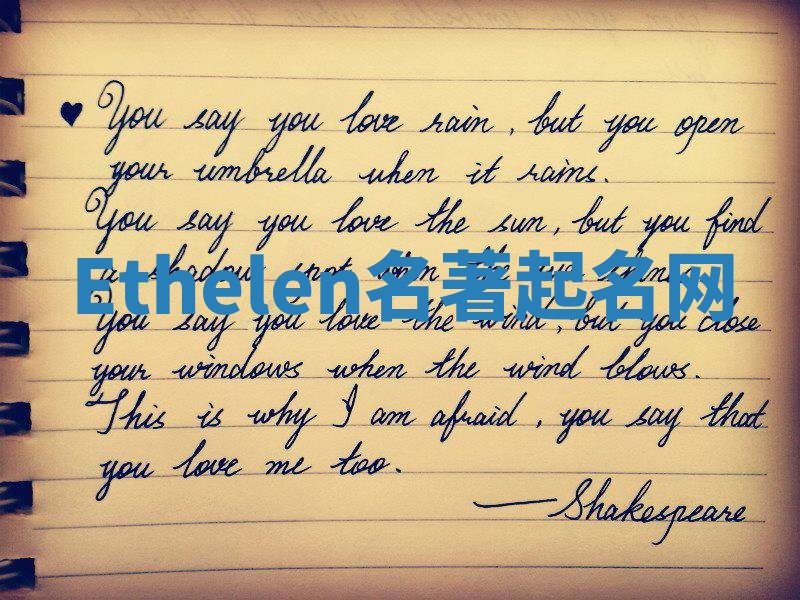 ♥ You say you love rain, but you open
your umbrella when it rains.
You say you love the sun, but you find
a shadow spot when the sun shines.
Ethelen名著起名网
You say you love the wind, but you close
your windows when the wind blows.
This is why I am afraid, you say that
you love me too.
— Shakespeare